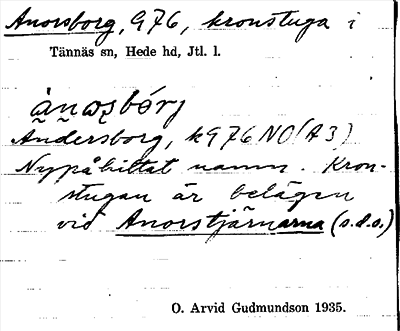 Anorsborg, G76, kronstuga i
Tännäs sn, Hede hd, Jtl. l.
Andersborg, k976NO(A3)
Nypåhittat namn. Kron-
stugan är belägen
vid Anorstjärnarna (s.d.o.)
O. Arvid Gudmundson 1935.